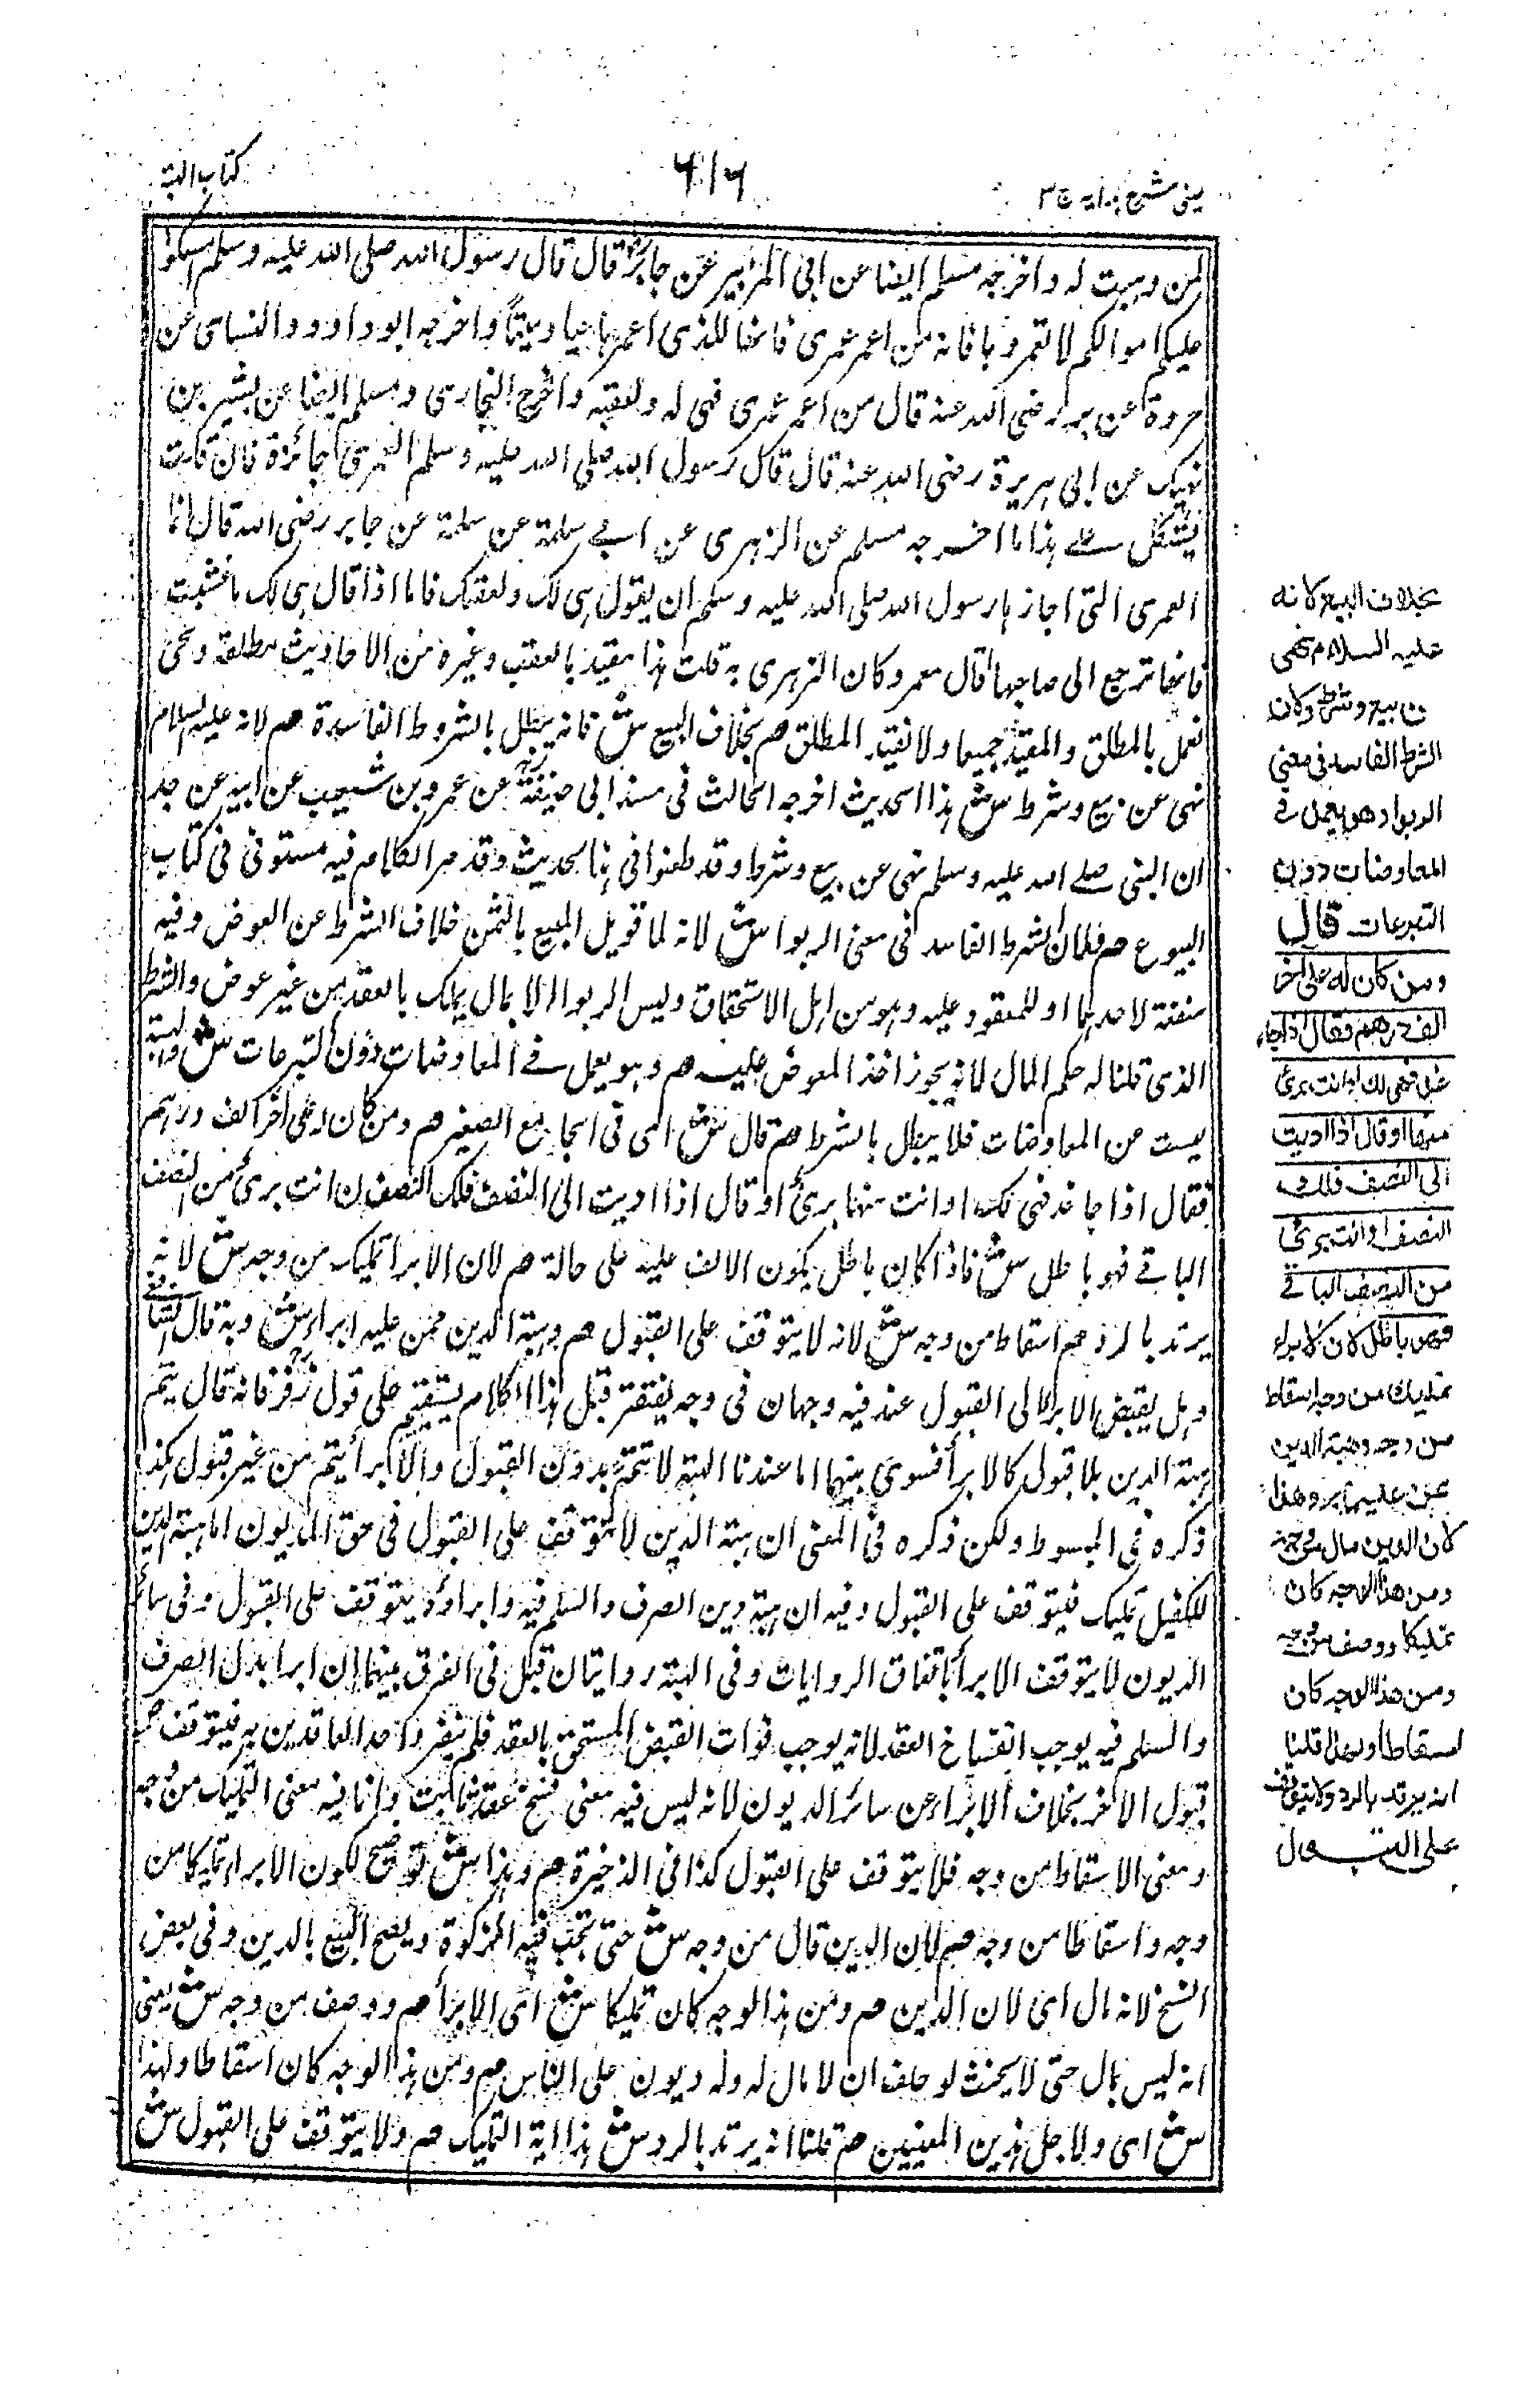 عینی شرح ہدایہ ج ٣
٦١٦
کتاب الہبة
لمن وہبت لہ واخرجہ مسلم ایضا عن ابی الزبیر عن جابر قال قال رسول اللہ صلی اللہ علیہ وسلم امسکوا
علیکم اموالکم لا تعمروہا فانہ من اعمر عمری فانہا للذی اعمرہا حیا ومیتاً واخرجہ ابوداوود والنسای عن
عروة عن جابر رضی اللہ عنہ قال من اعمر عمری فہی لہ ولعقبہ واخرج البخاری ومسلم ایضا عن بشیر بن
نہیک عن ابی ہریرة رضی اللہ عنہ قال قال رسول اللہ صلی اللہ علیہ وسلم العمری جائزة فان قلت
یشکل علے ہذا ما اخرجہ مسلم عن الزہری عن ابے سلمة عن سلمة عن جابر رضی اللہ قال انما
العمری التی اجازہا رسول اللہ صلی اللہ علیہ وسلم ان یقول ہی لک ولعقبک فاما اذا قال ہی لک ما عشت
فانہا ترجع الی صاحبہا قال معمر وکان الزہری بہ قلت ہذا مقید بالعقب وغیرہ من الاحادیث مطلقة ونحن
نعمل بالمطلق والمقید جمیعا ولا نقید المطلق صم بخلاف البیع ش فانہ یبطل بالشروط الفاسدة صم لانہ علیہ السلام
نہی عن بیع وشرط ش ہذا الحدیث اخرجہ الحالث فی مسند ابی حنیفة عن عمرو بن شعیب عن ابیہ عن جد
ان النبی صلے اللہ علیہ وسلم نہی عن بیع وشرط وقد طعنوا فی ہذا الحدیث وقد مر الکلام فیہ مستوفی فی کتاب
البیوع صم فلان الشرط الفاسد فی معنی الربوا ش لانہ لما قوبل المبیع بالثمن خلاف الشرط عن العوض وفیہ
منفعة لاحدہما او للمعقود علیہ وہو من اہل الاستحقاق ولیس الربوا الا بمال یملک بالعقد من غیر عوض والشرط
الذی قلنا لہ حکم المال لانہ یجوز اخذ المعوض علیہ صم وہو یعمل فے المعاوضات دون التبرعات ش والہبة
لیست من المعاوضات فلا یبطل بالشرط صم قال ش ای فی الجامع الصغیر صم ومن کان لہ علی آخر الف درہم
فقال اذا جاء غد فہی لک او انت منہا بریٔ او قال اذا ادیت الی النصف فلک النصف او انت بریٔ من النصف
الباقے فہو باطل ش فاذا کان باطل یکون الالف علیہ علی حالة صم لان الابراء تملیک من وجہ ش لانہ
یرتد بالرد صم اسقاط من وجہ ش لانہ لا یتوقف علی القبول صم وہبة الدین ممن علیہ ابراء ش وبہ قال الشافعے
وہل یقبض الابراء الی القبول عندہ فیہ وجہان فی وجہ یفتقر قیل ہذا الکلام یستقیم علی قول زفر فانہ قال یتم
ہبة الدین بلا قبول کالابراء فسوی بینہما اما عندنا الہبة لا تتم بدون القبول والابراء یتم من غیر قبول ہکذا
ذکرہ فی المبسوط ولکن ذکرہ فی المغنی ان ہبة الدین لا تتوقف علی القبول فی حق المدیون اما ہبة الدین
للکفیل تملیک فیتوقف علی القبول وفیہ ان ہبة دین الصرف والسلم فیہ وابراؤہ یتوقف علی القبول وفی سائر
الدیون لا یتوقف الابراء باتفاق الروایات وفی الہبة روایتان قیل فی الفرق بینہما ان ابراء بدل الصرف
والسلم فیہ یوجب انفساخ العقد لانہ یوجب فوات القبض المستحق بالعقد فلم ینفرد احد العاقدین بہ فیتوقف علی
قبول الآخر بخلاف الابراء عن سائر الدیون لانہ لیس فیہ معنی فسخ عقد ثابت وانما فیہ معنی التملیک من وجہ
ومعنی الاسقاط من وجہ فلا یتوقف علی القبول کذا فی الذخیرة صم وہذا ش توضیح لکون الابراء تملیکا من
وجہ واسقاطا من وجہ صم لان الدین قال من وجہ ش حتی تجب فیہ الزکوة ویصح البیع بالدین وفی بعض
النسخ لانہ مال ای لان الدین صم ومن ہذا الوجہ کان تملیکا ش ای الابراء صم ووصف من وجہ ش یعنی
انہ لیس بمال حتی لا یحنث لو حلف ان لا مال لہ ولہ دیون علی الناس صم ومن ہذا الوجہ کان اسقاطا ولہذا
ش ای ولاجل ہذین المعنیین صم قلنا انہ یرتد بالرد ش ہذا ایة التملیک صم ولا یتوقف علی القبول ش
بخلاف البیع لانه
علیه السلام نهی
عن بیع وشرط ولان
الشرط الفاسد فی معنی
الربوا وهو یعمل فے
المعاوضات دون
التبرعات قال
ومن کان له علی آخر
الف درهم فقال اذا جاء
غد فهی لك او انت بریٔ
منها او قال اذا ادیت
الی النصف فلك
النصف او انت بریٔ
من النصف الباقے
فهو باطل لان الابراء
تملیك من وجه اسقاط
من وجه وهبة الدین
ممن علیه ابراء وهذا
لان الدین مال من وجه
ومن هذا الوجه کان
تملیکا ووصف من وجه
ومن هذا الوجه کان
اسقاطا ولهذا قلنا
انه یرتد بالرد ولا یتوقف
علی القبول